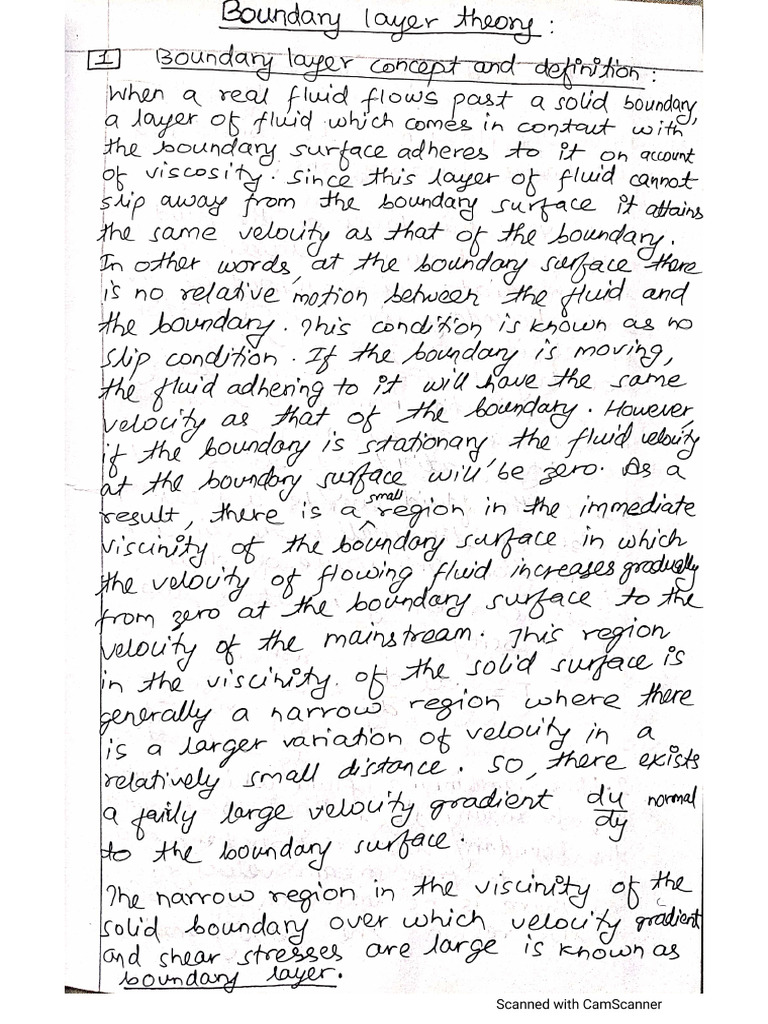 Boundary layer theory :
1 Boundary layer concept and definition :
When a real fluid flows past a solid boundary,
a layer of fluid which comes in contact with
the boundary surface adheres to it on account
of viscosity. Since this layer of fluid cannot
slip away from the boundary surface it attains
the same velocity as that of the boundary.
In other words, at the boundary surface there
is no relative motion between the fluid and
the boundary. This condition is known as no
slip condition. If the boundary is moving,
the fluid adhering to it will have the same
velocity as that of the boundary. However,
if the boundary is stationary, the fluid velocity
at the boundary surface will be zero. As a
result, there is a small region in the immediate
viscinity of the boundary surface in which
the velocity of flowing fluid increases gradually
from zero at the boundary surface to the
velocity of the mainstream. This region
in the viscinity of the solid surface is
generally a narrow region where there
is a larger variation of velocity in a
relatively small distance. So, there exists
a fairly large velocity gradient du/dy normal
to the boundary surface.
The narrow region in the viscinity of the
solid boundary over which velocity gradient
and shear stresses are large is known as
boundary layer.
Scanned with CamScanner